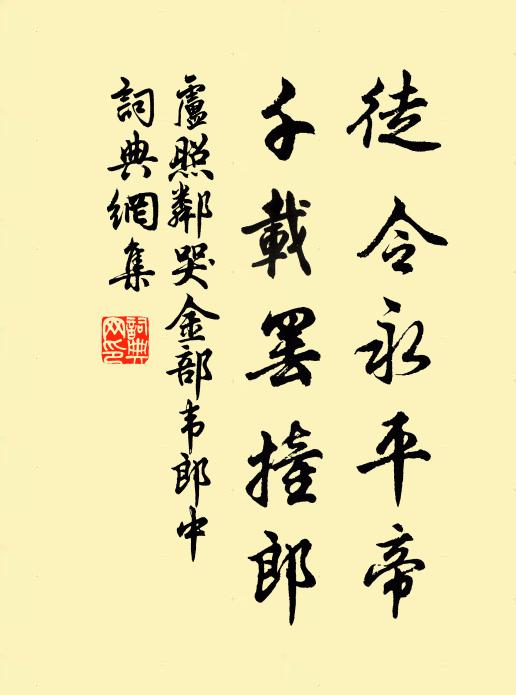 徒令永平帝
千載罷撞郎
盧照鄰哭金部韦郎中
詞典網集
詞典網印